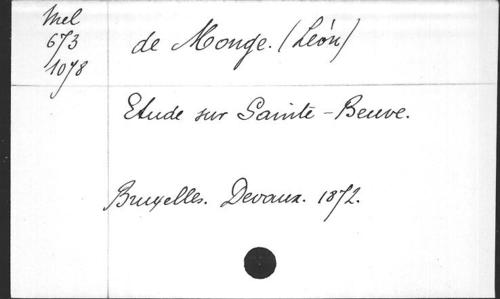 Mel
673
1078
de Monge. (Léon)
Etude sur Sainte-Beuve.
Bruxelles. Devaux. 1872.